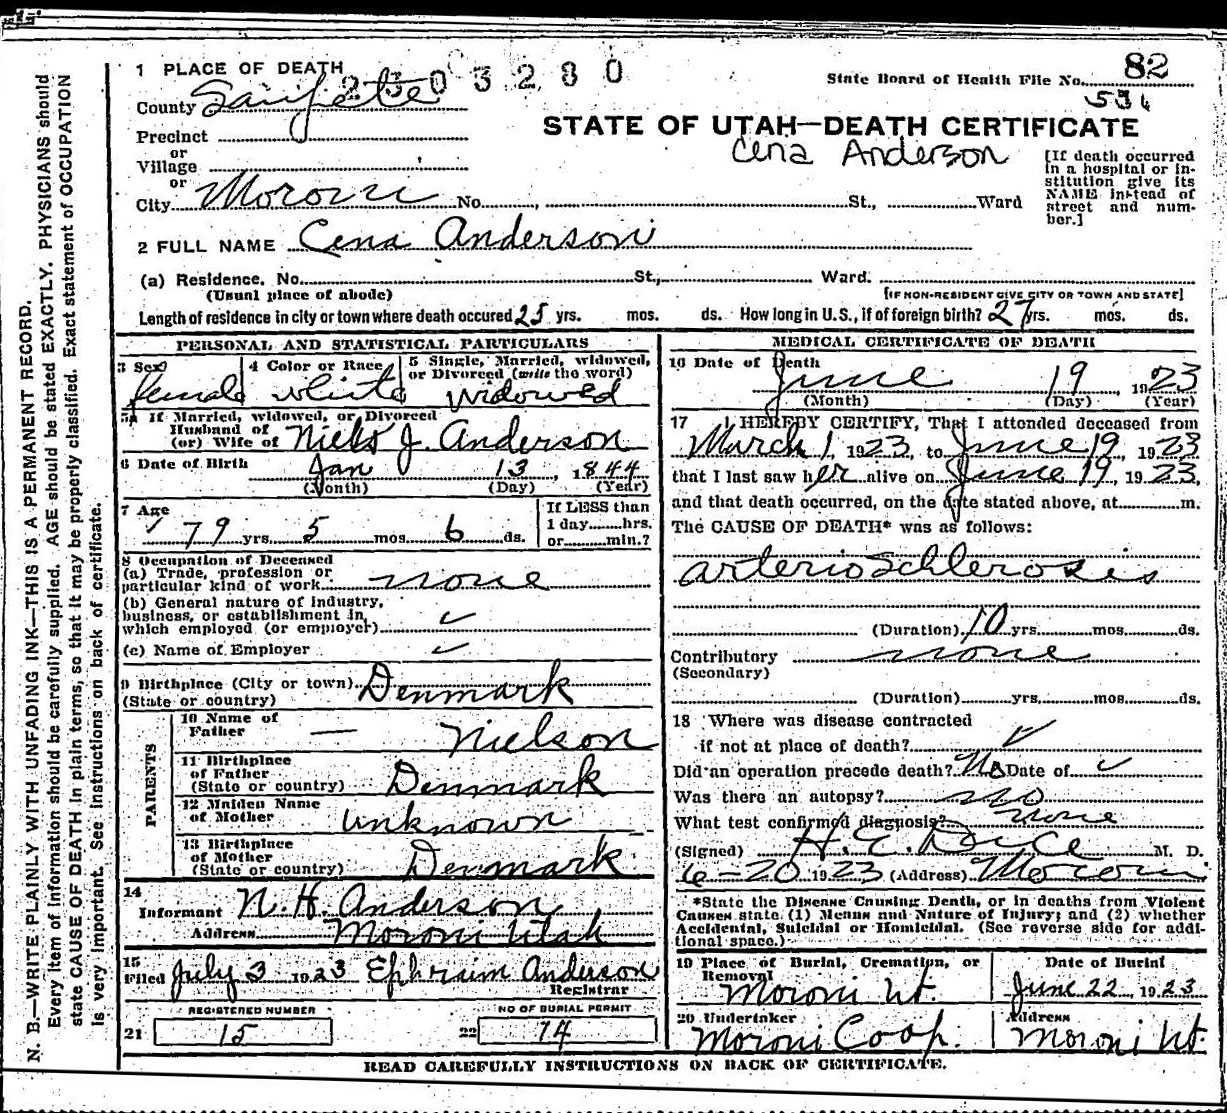 N. B.—WRITE PLAINLY WITH UNFADING INK—THIS IS A PERMANENT RECORD.
Every item of information should be carefully supplied. AGE should be stated EXACTLY. PHYSICIANS should
state CAUSE OF DEATH in plain terms, so that it may be properly classified. Exact statement of OCCUPATION
is very important. See instructions on back of certificate.
1 PLACE OF DEATH
County Sanpete
Precinct
or
Village
or
City Moroni No. St., Ward
State Board of Health File No. 82
STATE OF UTAH—DEATH CERTIFICATE
Cena Anderson
[If death occurred
in a hospital or in-
stitution give its
NAME instead of
street and num-
ber.]
2 FULL NAME Cena Anderson
(a) Residence. No. St., Ward.
(Usual place of abode) [IF NON-RESIDENT GIVE CITY OR TOWN AND STATE]
Length of residence in city or town where death occured 25 yrs. mos. ds. How long in U.S., if of foreign birth? 27 yrs. mos. ds.
PERSONAL AND STATISTICAL PARTICULARS
3 Sex 4 Color or Race 5 Single, Married, widowed,
or Divorced (write the word)
female white widowed
5a If Married, widowed, or Divorced
Husband of
(or) Wife of Niels J. Anderson
6 Date of Birth Jan 13, 1844
(Month) (Day) (Year)
7 Age If LESS than
79 yrs. 5 mos. 6 ds. 1 day hrs.
or min.?
8 Occupation of Deceased
(a) Trade, profession or
particular kind of work none
(b) General nature of industry,
business, or establishment in
which employed (or employer)
(c) Name of Employer
9 Birthplace (City or town) Denmark
(State or country)
PARENTS
10 Name of
Father — Nielson
11 Birthplace
of Father
(State or country) Denmark
12 Maiden Name
of Mother unknown
13 Birthplace
of Mother
(State or country) Denmark
14
Informant N. H. Anderson
Address Moroni Utah
15
Filed July 3 1923 Ephraim Anderson
Registrar
REGISTERED NUMBER NO OF BURIAL PERMIT
21 15 22 14
MEDICAL CERTIFICATE OF DEATH
16 Date of Death
June 19 1923
(Month) (Day) (Year)
17 I HEREBY CERTIFY, That I attended deceased from
March 1, 1923, to June 19, 1923
that I last saw her alive on June 19, 1923,
and that death occurred, on the date stated above, at m.
The CAUSE OF DEATH* was as follows:
arterio Schlerosis
(Duration) 10 yrs. mos. ds.
Contributory none
(Secondary)
(Duration) yrs. mos. ds.
18 Where was disease contracted
if not at place of death?
Did an operation precede death? No Date of
Was there an autopsy? no
What test confirmed diagnosis? none
(Signed) M. D.
6-20 1923 (Address) Moroni
*State the Disease Causing Death, or in deaths from Violent
Causes state (1) Means and Nature of Injury; and (2) whether
Accidental, Suicidal or Homicidal. (See reverse side for addi-
tional space.)
19 Place of Burial, Cremation, or
Removal Date of Burial
Moroni Ut. June 22, 1923
20 Undertaker Address
Moroni Coop. Moroni Ut.
READ CAREFULLY INSTRUCTIONS ON BACK OF CERTIFICATE.